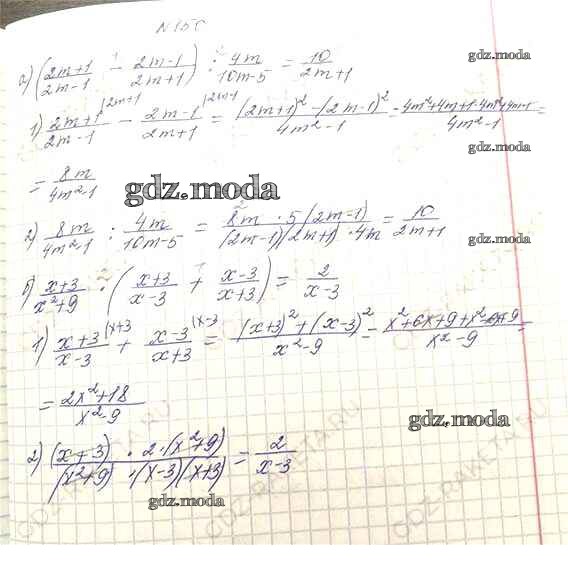 N 150
а) (2m+1/2m-1 - 2m-1/2m+1) : 4m/10m-5 = 10/2m+1
gdz.moda
1) 2m+1/2m-1 |2m+1 - 2m-1/2m+1 |2m-1 = (2m+1)²-(2m-1)²/4m²-1 = 4m²+4m+1-4m²+4m-1/4m²-1 =
= 8m/4m²-1
gdz.moda
gdz.moda
2) 8m/4m²-1 : 4m/10m-5 = 8m · 5(2m-1)/(2m-1)(2m+1) · 4m = 10/2m+1
б) x+3/x²+9 · (x+3/x-3 + x-3/x+3) = 2/x-3
1) x+3/x-3 |x+3 + x-3/x+3 |x-3 = (x+3)²+(x-3)²/x²-9 = x²+6x+9+x²-6x+9/x²-9 =
= 2x²+18/x²-9
gdz.moda
2) (x+3) · 2·(x²+9)/(x²+9) · (x-3)(x+3) = 2/x-3
gdz.moda
GDZ-RAKETA.RU